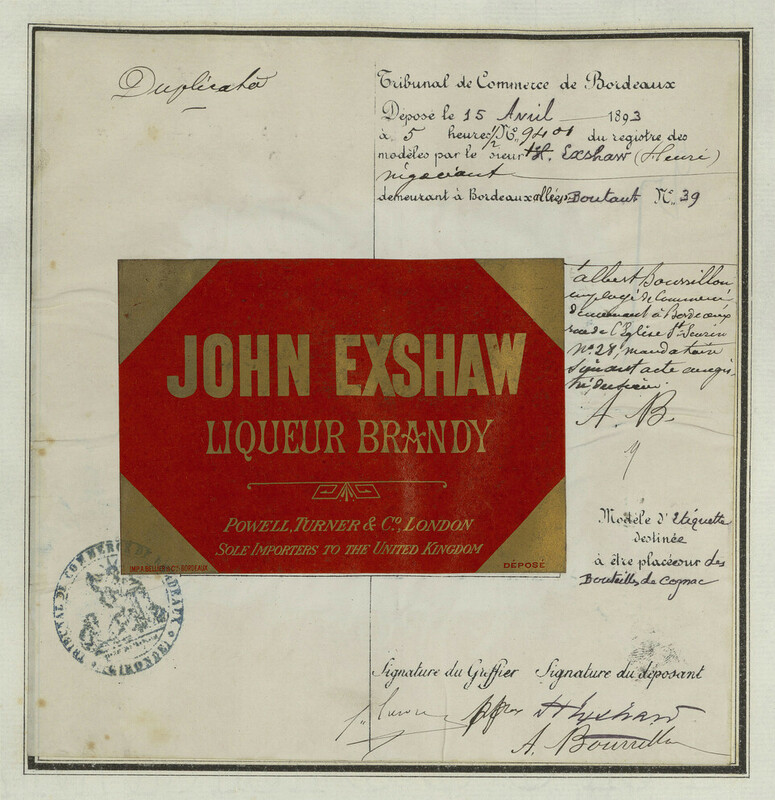 Duplicata
Tribunal de Commerce de Bordeaux
Déposé le 15 Avril 1893
à 5 heures 1/2 Nº 9401 du registre des
modèles par le sieur H. Exshaw (Henri)
négociant
demeurant à Bordeaux allées Boutaut Nº 39
JOHN EXSHAW
LIQUEUR BRANDY
POWELL, TURNER & Cº, LONDON
SOLE IMPORTERS TO THE UNITED KINGDOM
IMP. A. BELLIER & Cie BORDEAUX
DÉPOSÉ
albert Bourrillon
employé de Commerce
demeurant à Bordeaux
rue de l'Eglise St Seurin
Nº 28, mandataire
suivant acte enregis-
A. B.
Modèle d'Etiquette
destinée
à être placée sur des
Bouteilles de Cognac
TRIBUNAL DE COMMERCE DE BORDEAUX
Signature du Greffier Signature du déposant
H Exshaw